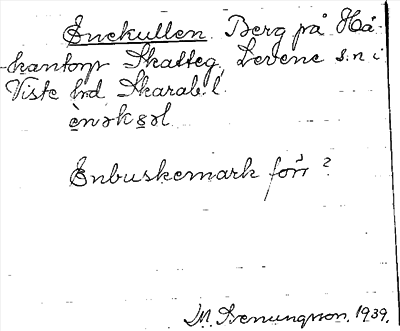 Enekullen. Berg på Hå-
kantorp Skatteg, Levene s:n i
Viste hrd Skarab. l.
ènəkʂəl
Enbuskemark förr?
1939.